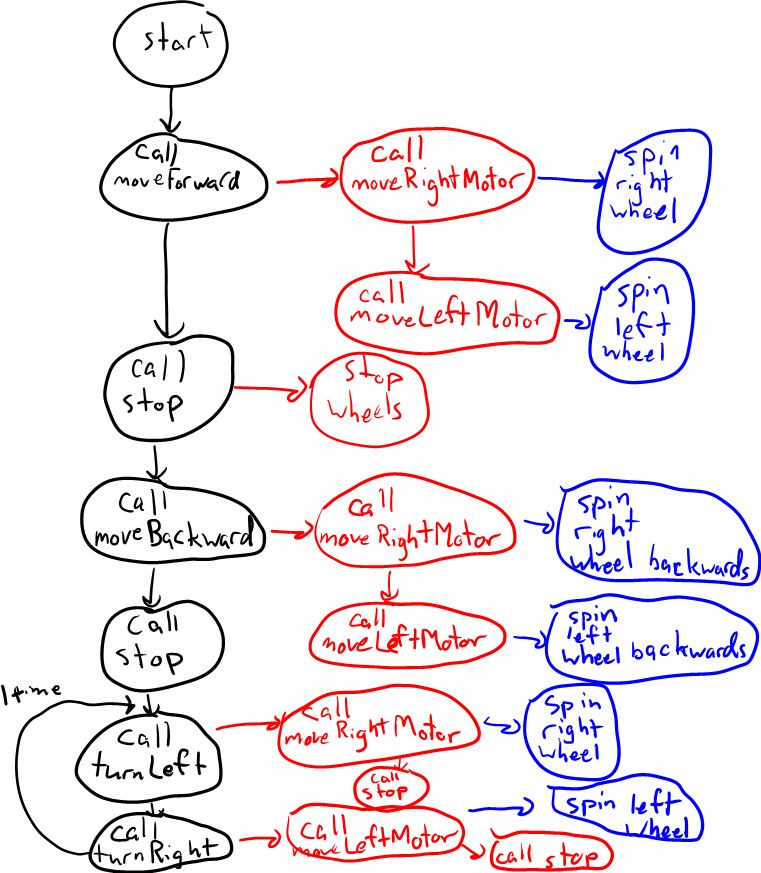 start
call
moveForward
call
moveRightMotor
spin
right
wheel
call
moveLeftMotor
spin
left
wheel
call
stop
stop
wheels
call
moveBackward
call
moveRightMotor
spin
right
wheel backwards
call
stop
call
moveLeftMotor
spin
left
wheel backwards
1 time
call
turnLeft
call
moveRightMotor
spin
right
wheel
call
stop
call
turnRight
call
moveLeftMotor
spin left
wheel
call stop